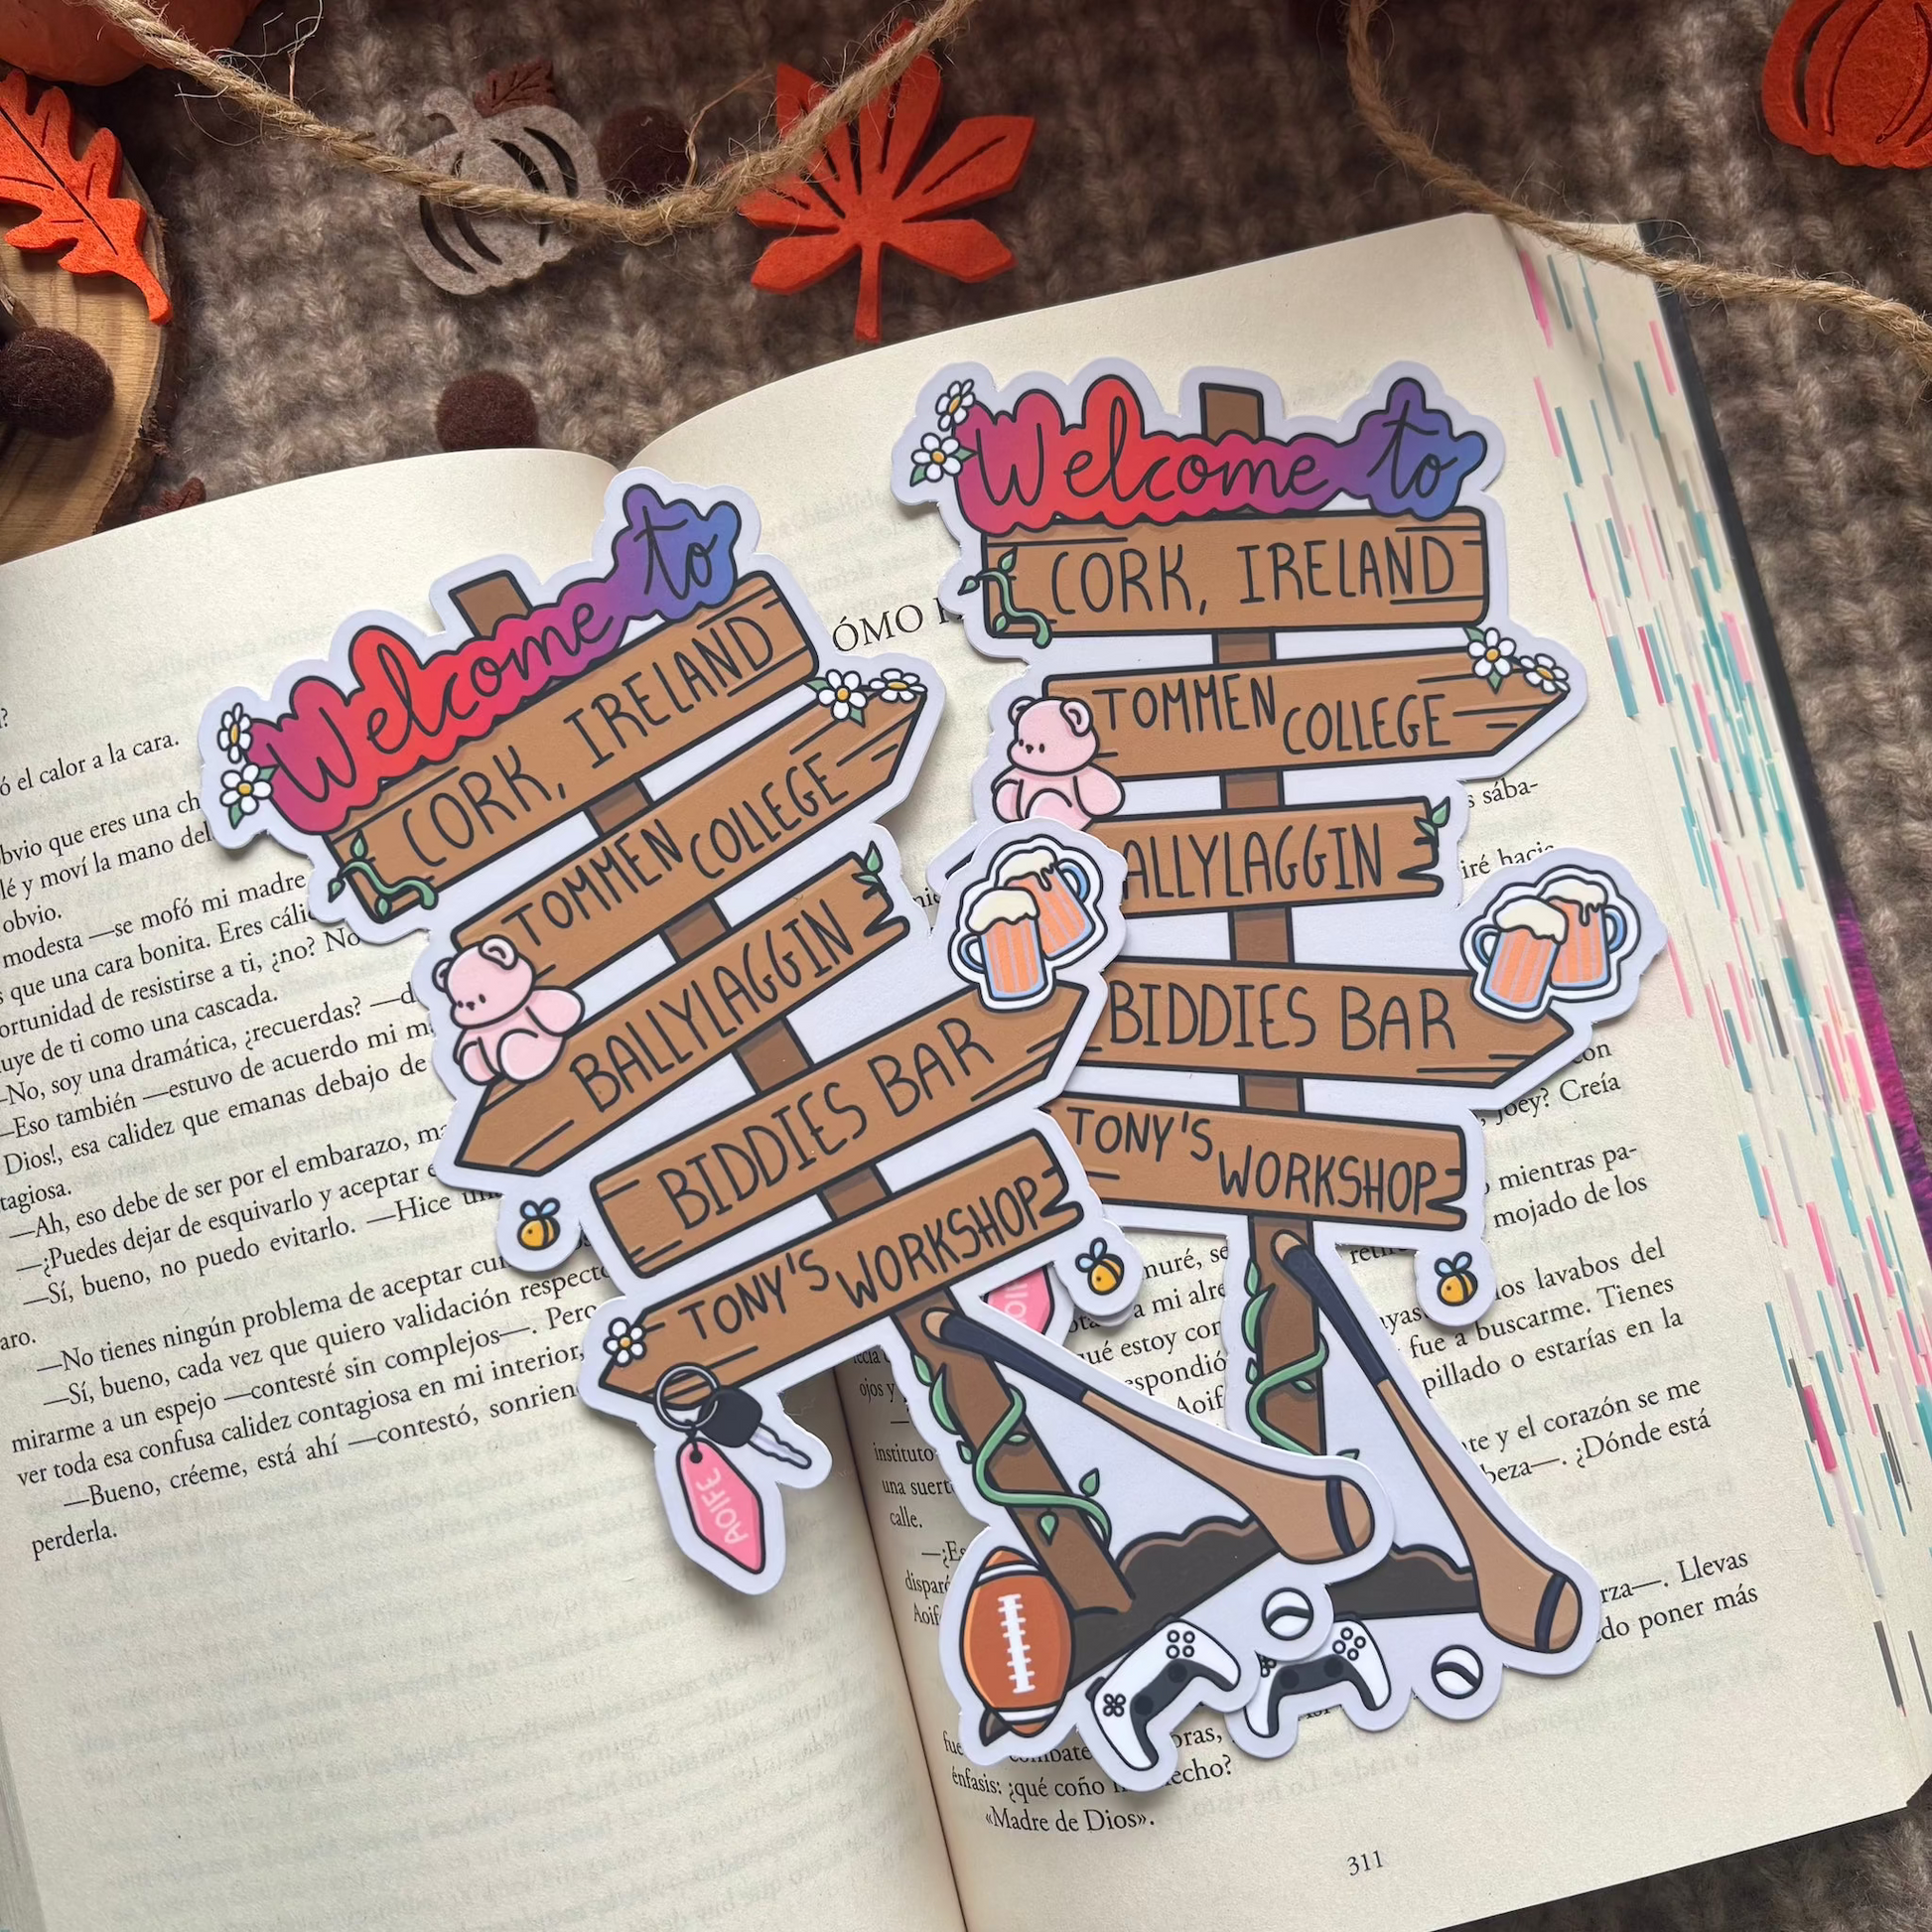 Welcome to
CORK, IRELAND
TOMMEN COLLEGE
BALLYLAGGIN
BIDDIES BAR
TONY'S WORKSHOP
AOIFE
Welcome to
CORK, IRELAND
TOMMEN COLLEGE
ALLYLAGGIN
BIDDIES BAR
TONY'S WORKSHOP
ó el calor a la cara.
obvio que eres una
lé y moví la mano del
obvio.
modesta —se mofó mi madre
que una cara bonita. Eres
ortunidad de resistirse a ti, ¿no? No
uye de ti como una cascada.
—No, soy una dramática, ¿recuerdas?
—Eso también —estuvo de acuerdo mi
Dios!, esa calidez que emanas debajo de
tagiosa.
—Ah, eso debe de ser por el embarazo,
—¿Puedes dejar de esquivarlo y aceptar
—Sí, bueno, no puedo evitarlo. —Hice
aro.
—No tienes ningún problema de aceptar
—Sí, bueno, cada vez que quiero validación respecto
mirarme a un espejo —contesté sin complejos—. Pero
ver toda esa confusa calidez contagiosa en mi interior,
—Bueno, créeme, está ahí —contestó,
perderla.
ÓMO
s sába-
iré hacia
con
Joey? Creía
mientras pa-
mojado de los
muré, se
los lavabos del
a mi
fue a buscarme. Tienes
qué estoy
pillado o estarías en la
ojos y
espondió
Aoif
instituto
te y el corazón se me
una suert
beza—. ¿Dónde está
calle.
—¿Es
disparé
rza—. Llevas
Aoif
do poner más
fue
combate
oras,
énfasis: ¿qué coño
echo?
«Madre de Dios».
311